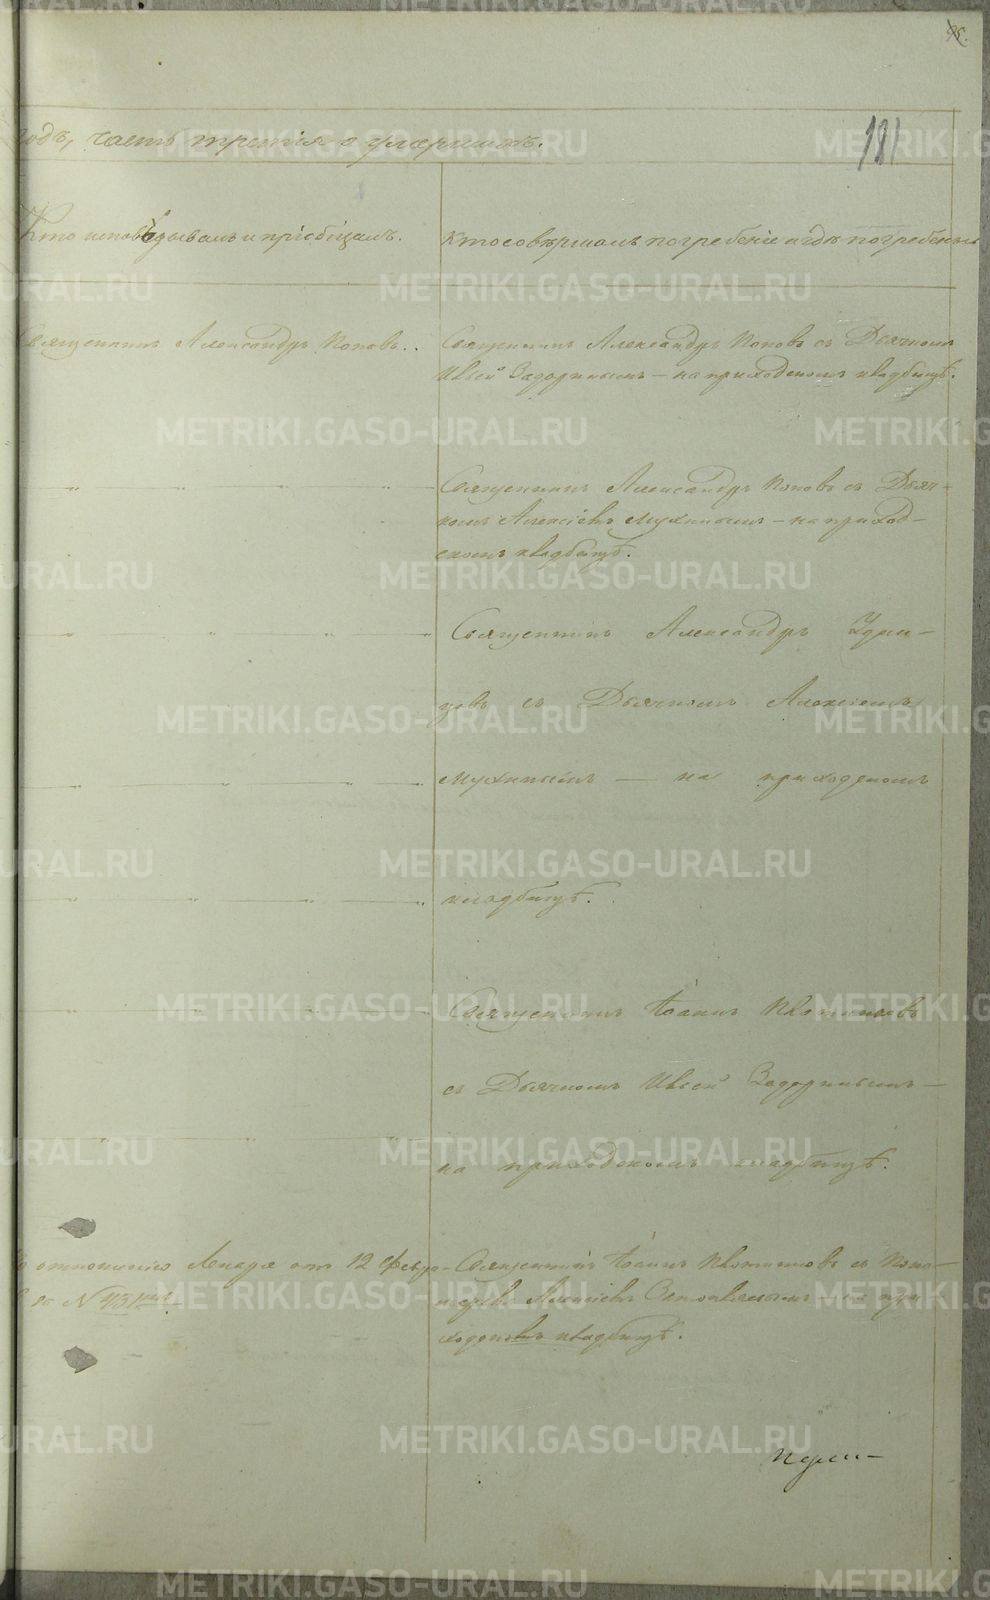 95.
181
годъ, часть третія о умершихъ.
Кто исповѣдывалъ и пріобщалъ.
Кто совершалъ погребеніе и гдѣ погребены
Священникъ Александръ Поповъ..
Священникъ Александръ Поповъ съ Дьячкомъ
Задоринымъ — на приходскомъ кладбищѣ.
Священникъ Александръ Поповъ съ Дьяч-
комъ Алексіемъ Мухинымъ — на приход-
скомъ кладбищѣ.
Священникъ Александръ Удин-
цевъ съ Дьячкомъ Алексіемъ
Мухинымъ — на приходскомъ
кладбищѣ.
Священникъ Іоаннъ
съ Дьячкомъ Задоринымъ —
на приходскомъ кладбищѣ.
отношенію отъ 12 Февра-
за N 431
Священникъ Іоаннъ съ Поно-
маремъ Алексіемъ — на при
ходскомъ кладбищѣ.
METRIKI.GASO-URAL.RU